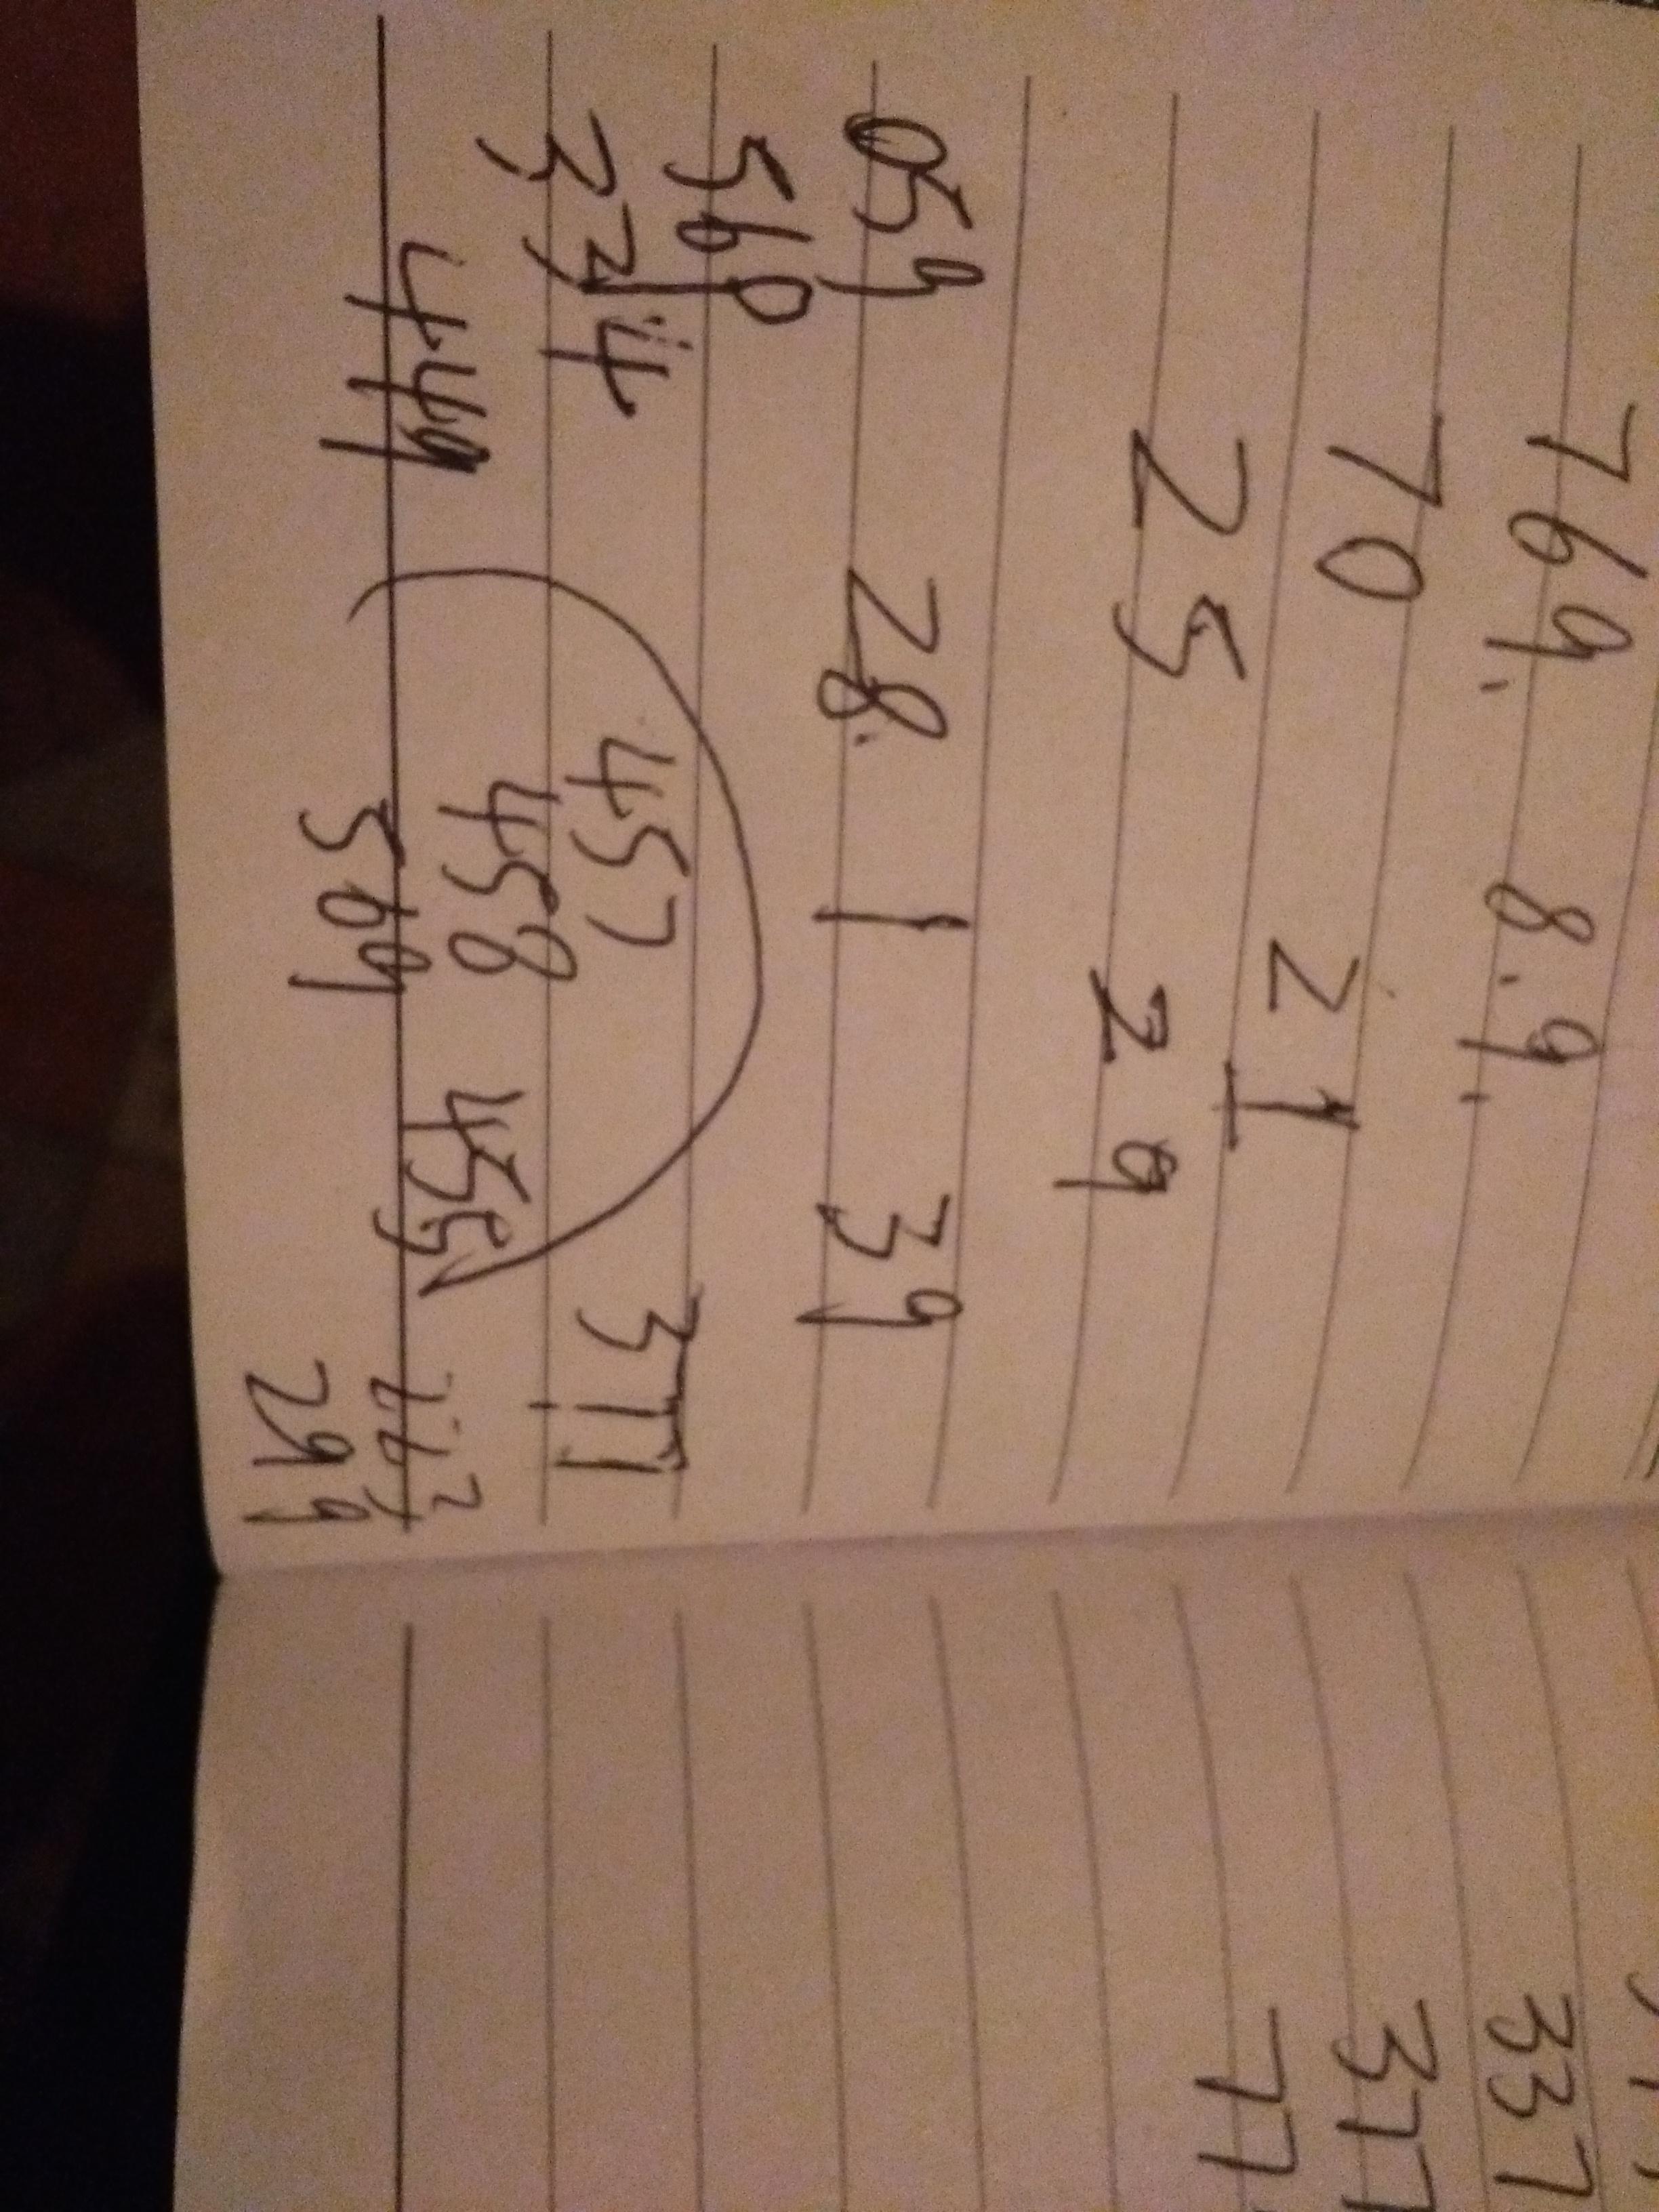 769. 8.9.
70 21
25 29
059 28. 1 39
560
457 377
458 455
449 509
299
337
377
77